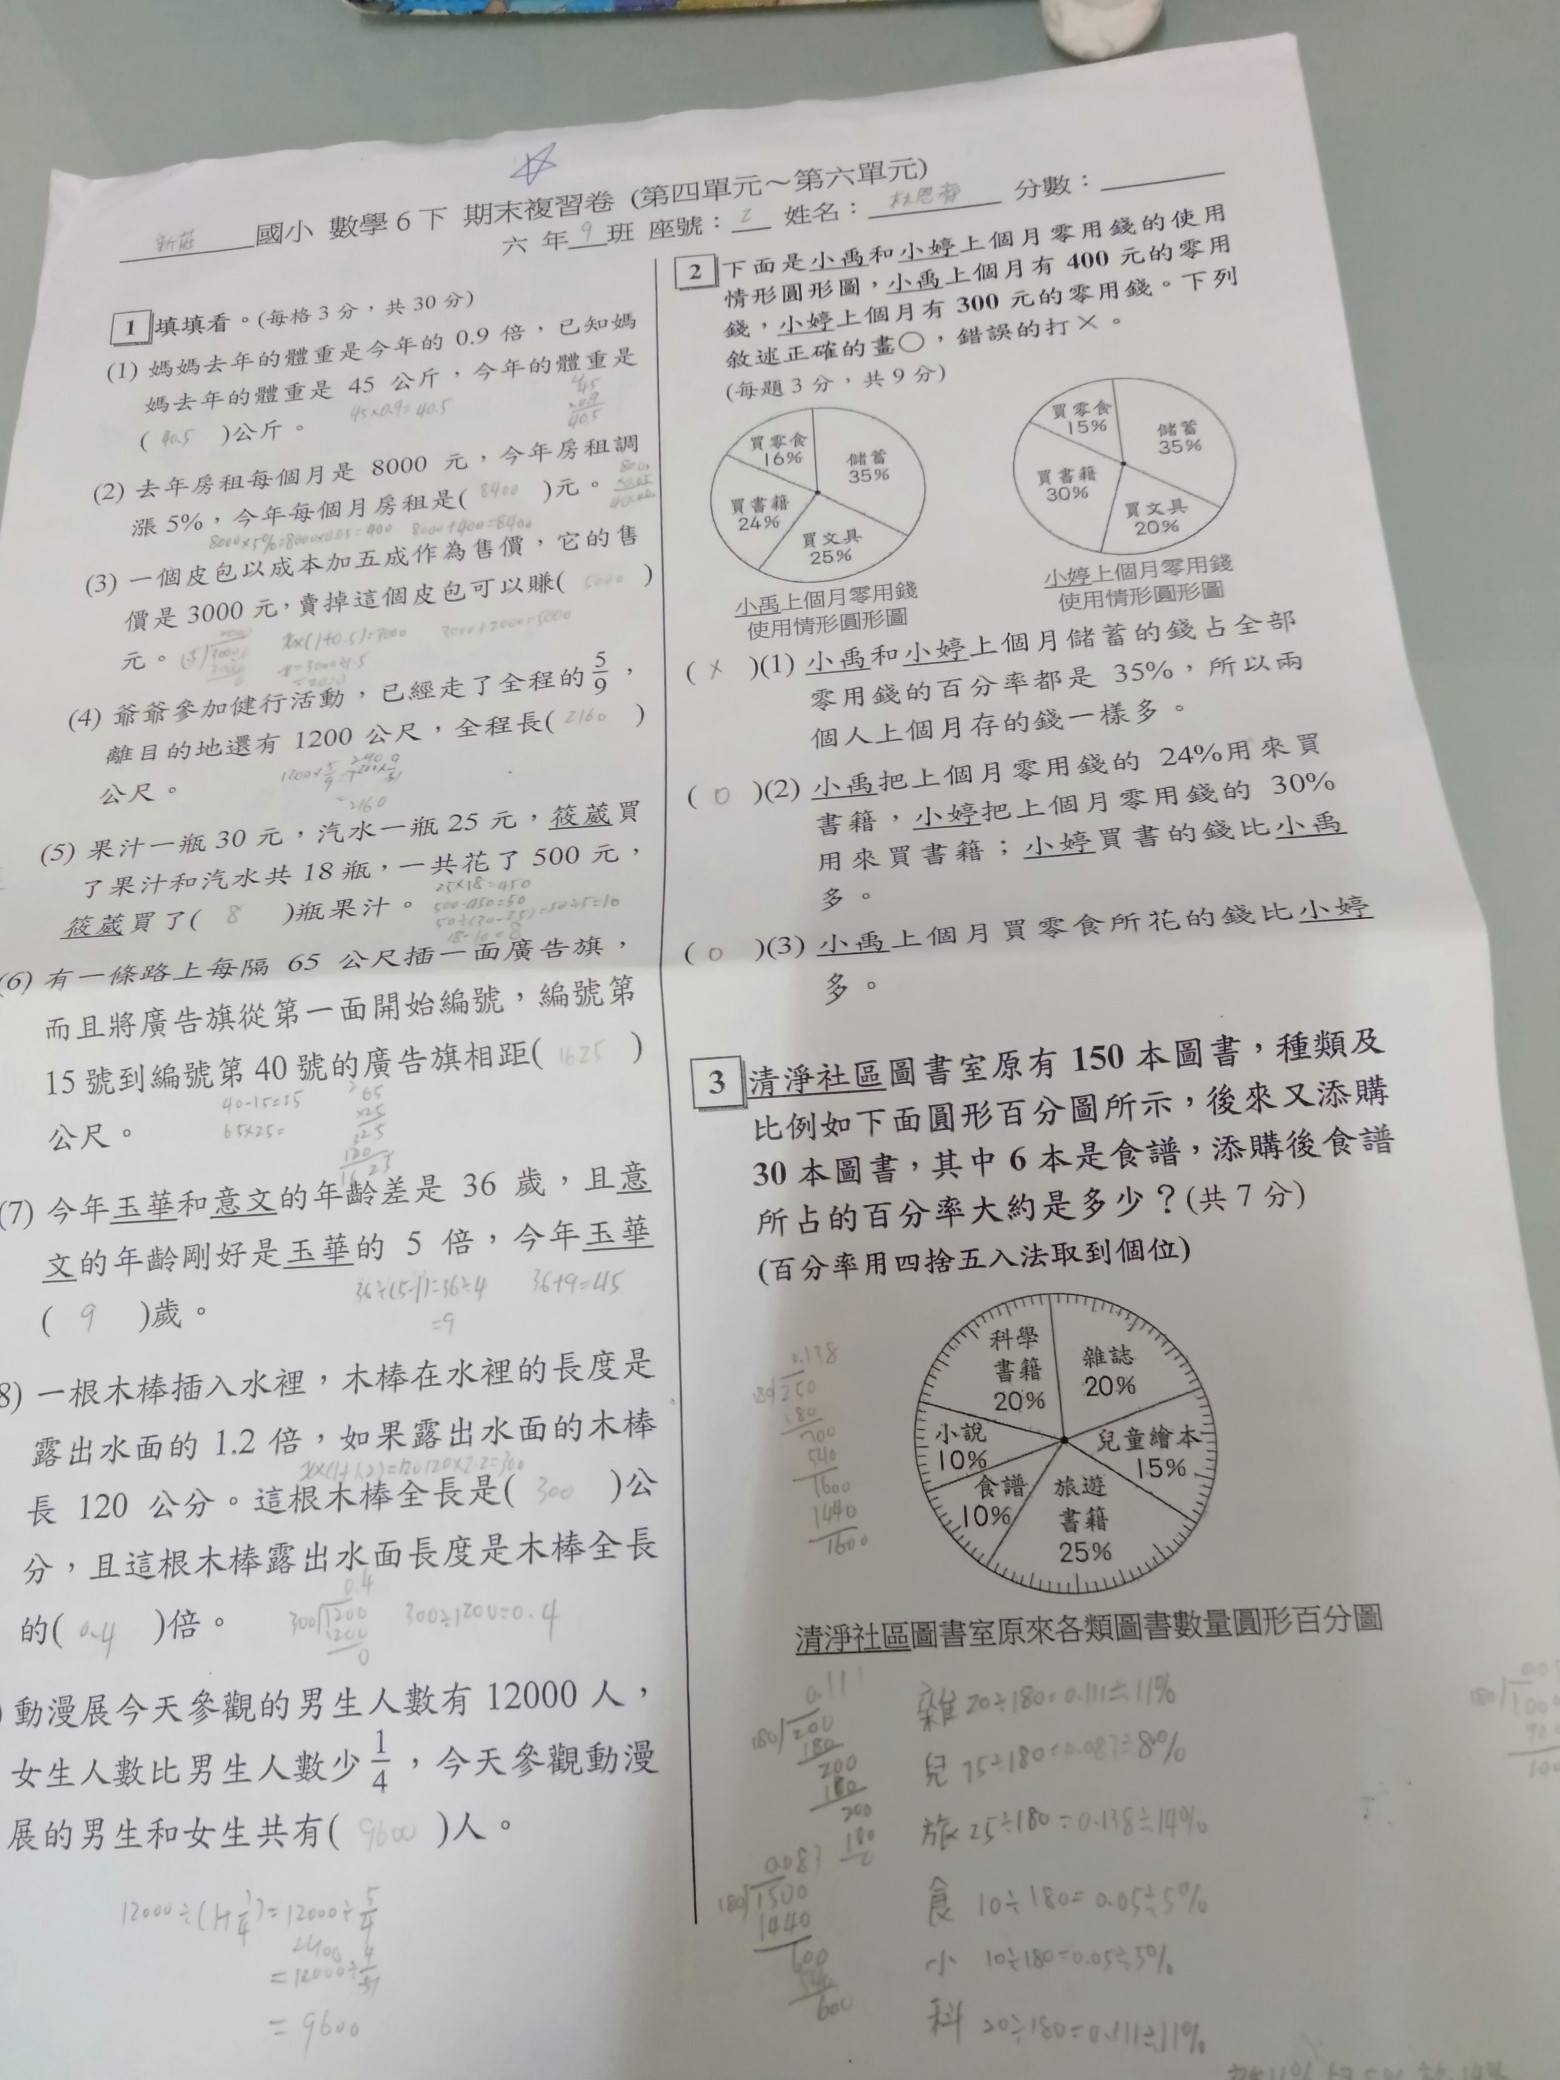 新莊國小 數學6下 期末複習卷 (第四單元～第六單元)
六 年9班 座號：2 姓名： 分數：
1 填填看。(每格3分，共30分)
(1) 媽媽去年的體重是今年的 0.9 倍，已知媽
媽去年的體重是 45 公斤，今年的體重是
( 40.5 )公斤。
45×0.9=40.5
45
×0.9
40.5
(2) 去年房租每個月是 8000 元，今年房租調
漲 5%，今年每個月房租是( 8400 )元。
8000×5%=8000×0.05=400 8000+400=8400
(3) 一個皮包以成本加五成作為售價，它的售
價是 3000 元，賣掉這個皮包可以賺( 5000 )
元。
3000+2000=5000
(4) 爺爺參加健行活動，已經走了全程的5/9，
離目的地還有 1200 公尺，全程長( 2160 )
公尺。
=2160
(5) 果汁一瓶 30 元，汽水一瓶 25 元，筱葳買
了果汁和汽水共 18 瓶，一共花了 500 元，
筱葳買了( 8 )瓶果汁。
25×18=450
500-450=50
50÷(30-25)=50÷5=10
18-10=8
(6) 有一條路上每隔 65 公尺插一面廣告旗，
而且將廣告旗從第一面開始編號，編號第
15 號到編號第 40 號的廣告旗相距( 1625 )
公尺。
65×25=
65
×25
325
(7) 今年玉華和意文的年齡差是 36 歲，且意
文的年齡剛好是玉華的 5 倍，今年玉華
( 9 )歲。
36÷(5-1)=36÷4 36+9=45
=9
8) 一根木棒插入水裡，木棒在水裡的長度是
露出水面的 1.2 倍，如果露出水面的木棒
長 120 公分。這根木棒全長是( 300 )公
分，且這根木棒露出水面長度是木棒全長
的( 0.4 )倍。
0.4
300 1200
1200
0
300÷1200=0.4
) 動漫展今天參觀的男生人數有 12000 人，
女生人數比男生人數少1/4，今天參觀動漫
展的男生和女生共有( 9600 )人。
= 9600
2 下面是小禹和小婷上個月零用錢的使用
情形圓形圖，小禹上個月有 400 元的零用
錢，小婷上個月有 300 元的零用錢。下列
敘述正確的畫○，錯誤的打×。
(每題3分，共9分)
買零食
16%
儲蓄
35%
買書籍
24%
買文具
25%
小禹上個月零用錢
使用情形圓形圖
買零食
15%
儲蓄
35%
買書籍
30%
買文具
20%
小婷上個月零用錢
使用情形圓形圖
( × )(1) 小禹和小婷上個月儲蓄的錢占全部
零用錢的百分率都是 35%，所以兩
個人上個月存的錢一樣多。
( ○ )(2) 小禹把上個月零用錢的 24%用來買
書籍，小婷把上個月零用錢的 30%
用來買書籍；小婷買書的錢比小禹
多。
( ○ )(3) 小禹上個月買零食所花的錢比小婷
多。
3 清淨社區圖書室原有 150 本圖書，種類及
比例如下面圓形百分圖所示，後來又添購
30 本圖書，其中 6 本是食譜，添購後食譜
所占的百分率大約是多少？(共7分)
(百分率用四捨五入法取到個位)
科學
書籍
20%
雜誌
20%
小說
10%
兒童繪本
15%
食譜
10%
旅遊
書籍
25%
清淨社區圖書室原來各類圖書數量圓形百分圖
雜 20÷180=0.111≒11%
旅 25÷180=0.138≒14%
食 10÷180=0.05≒5%
小 10÷180=0.05≒5%
科 20÷180=0.111≒11%